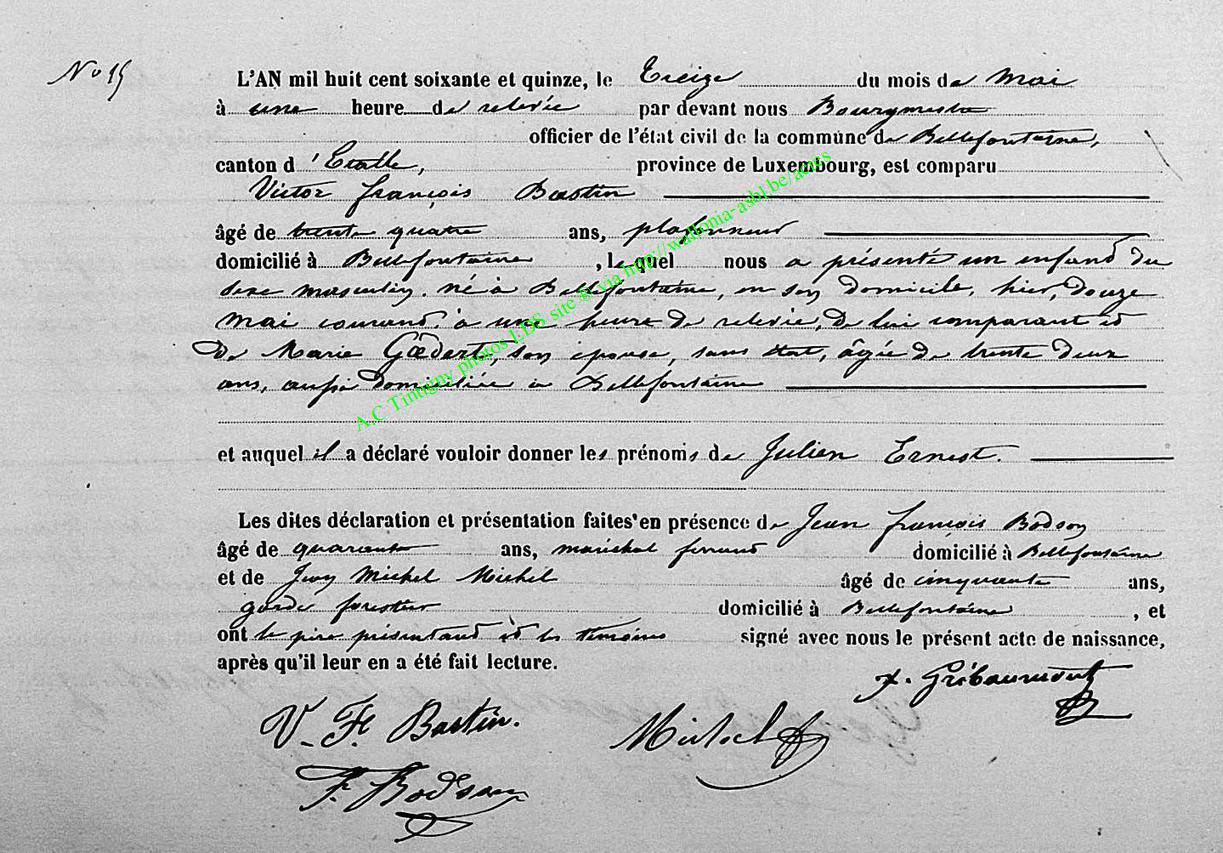 No 15
L'AN mil huit cent soixante et quinze, le Treize du mois de Mai
à une heure de relevée par devant nous Bourgmestre
officier de l'état civil de la commune de Bellefontaine,
canton d'Etalle, province de Luxembourg, est comparu
Victor françois Bastin
âgé de trente quatre ans, plafonneur
domicilié à Bellefontaine, lequel nous a présenté un enfand du
sexe masculin, né à Bellefontaine, en son domicile, hier, douze
mai courand, à une heure de relevée, de lui comparant et
de Marie Gœdert, son épouse, sans état, âgée de trente deux
ans, aussi domiciliée à Bellefontaine
et auquel il a déclaré vouloir donner les prénoms de Julien Ernest.
Les dites déclaration et présentation faites en présence de Jean françois Bodson
âgé de quarante ans, maréchal ferrand domicilié à Bellefontaine
et de Jean Michel Michel âgé de cinquante ans,
garde forestier domicilié à Bellefontaine, et
ont le père présentand et les témoins signé avec nous le présent acte de naissance,
après qu'il leur en a été fait lecture.
Gribaumont
V. F. Bastin.
Michel
F. Bodson
A.C Tintigny photos LDS site © via http://wallonia-asbl.be/actes